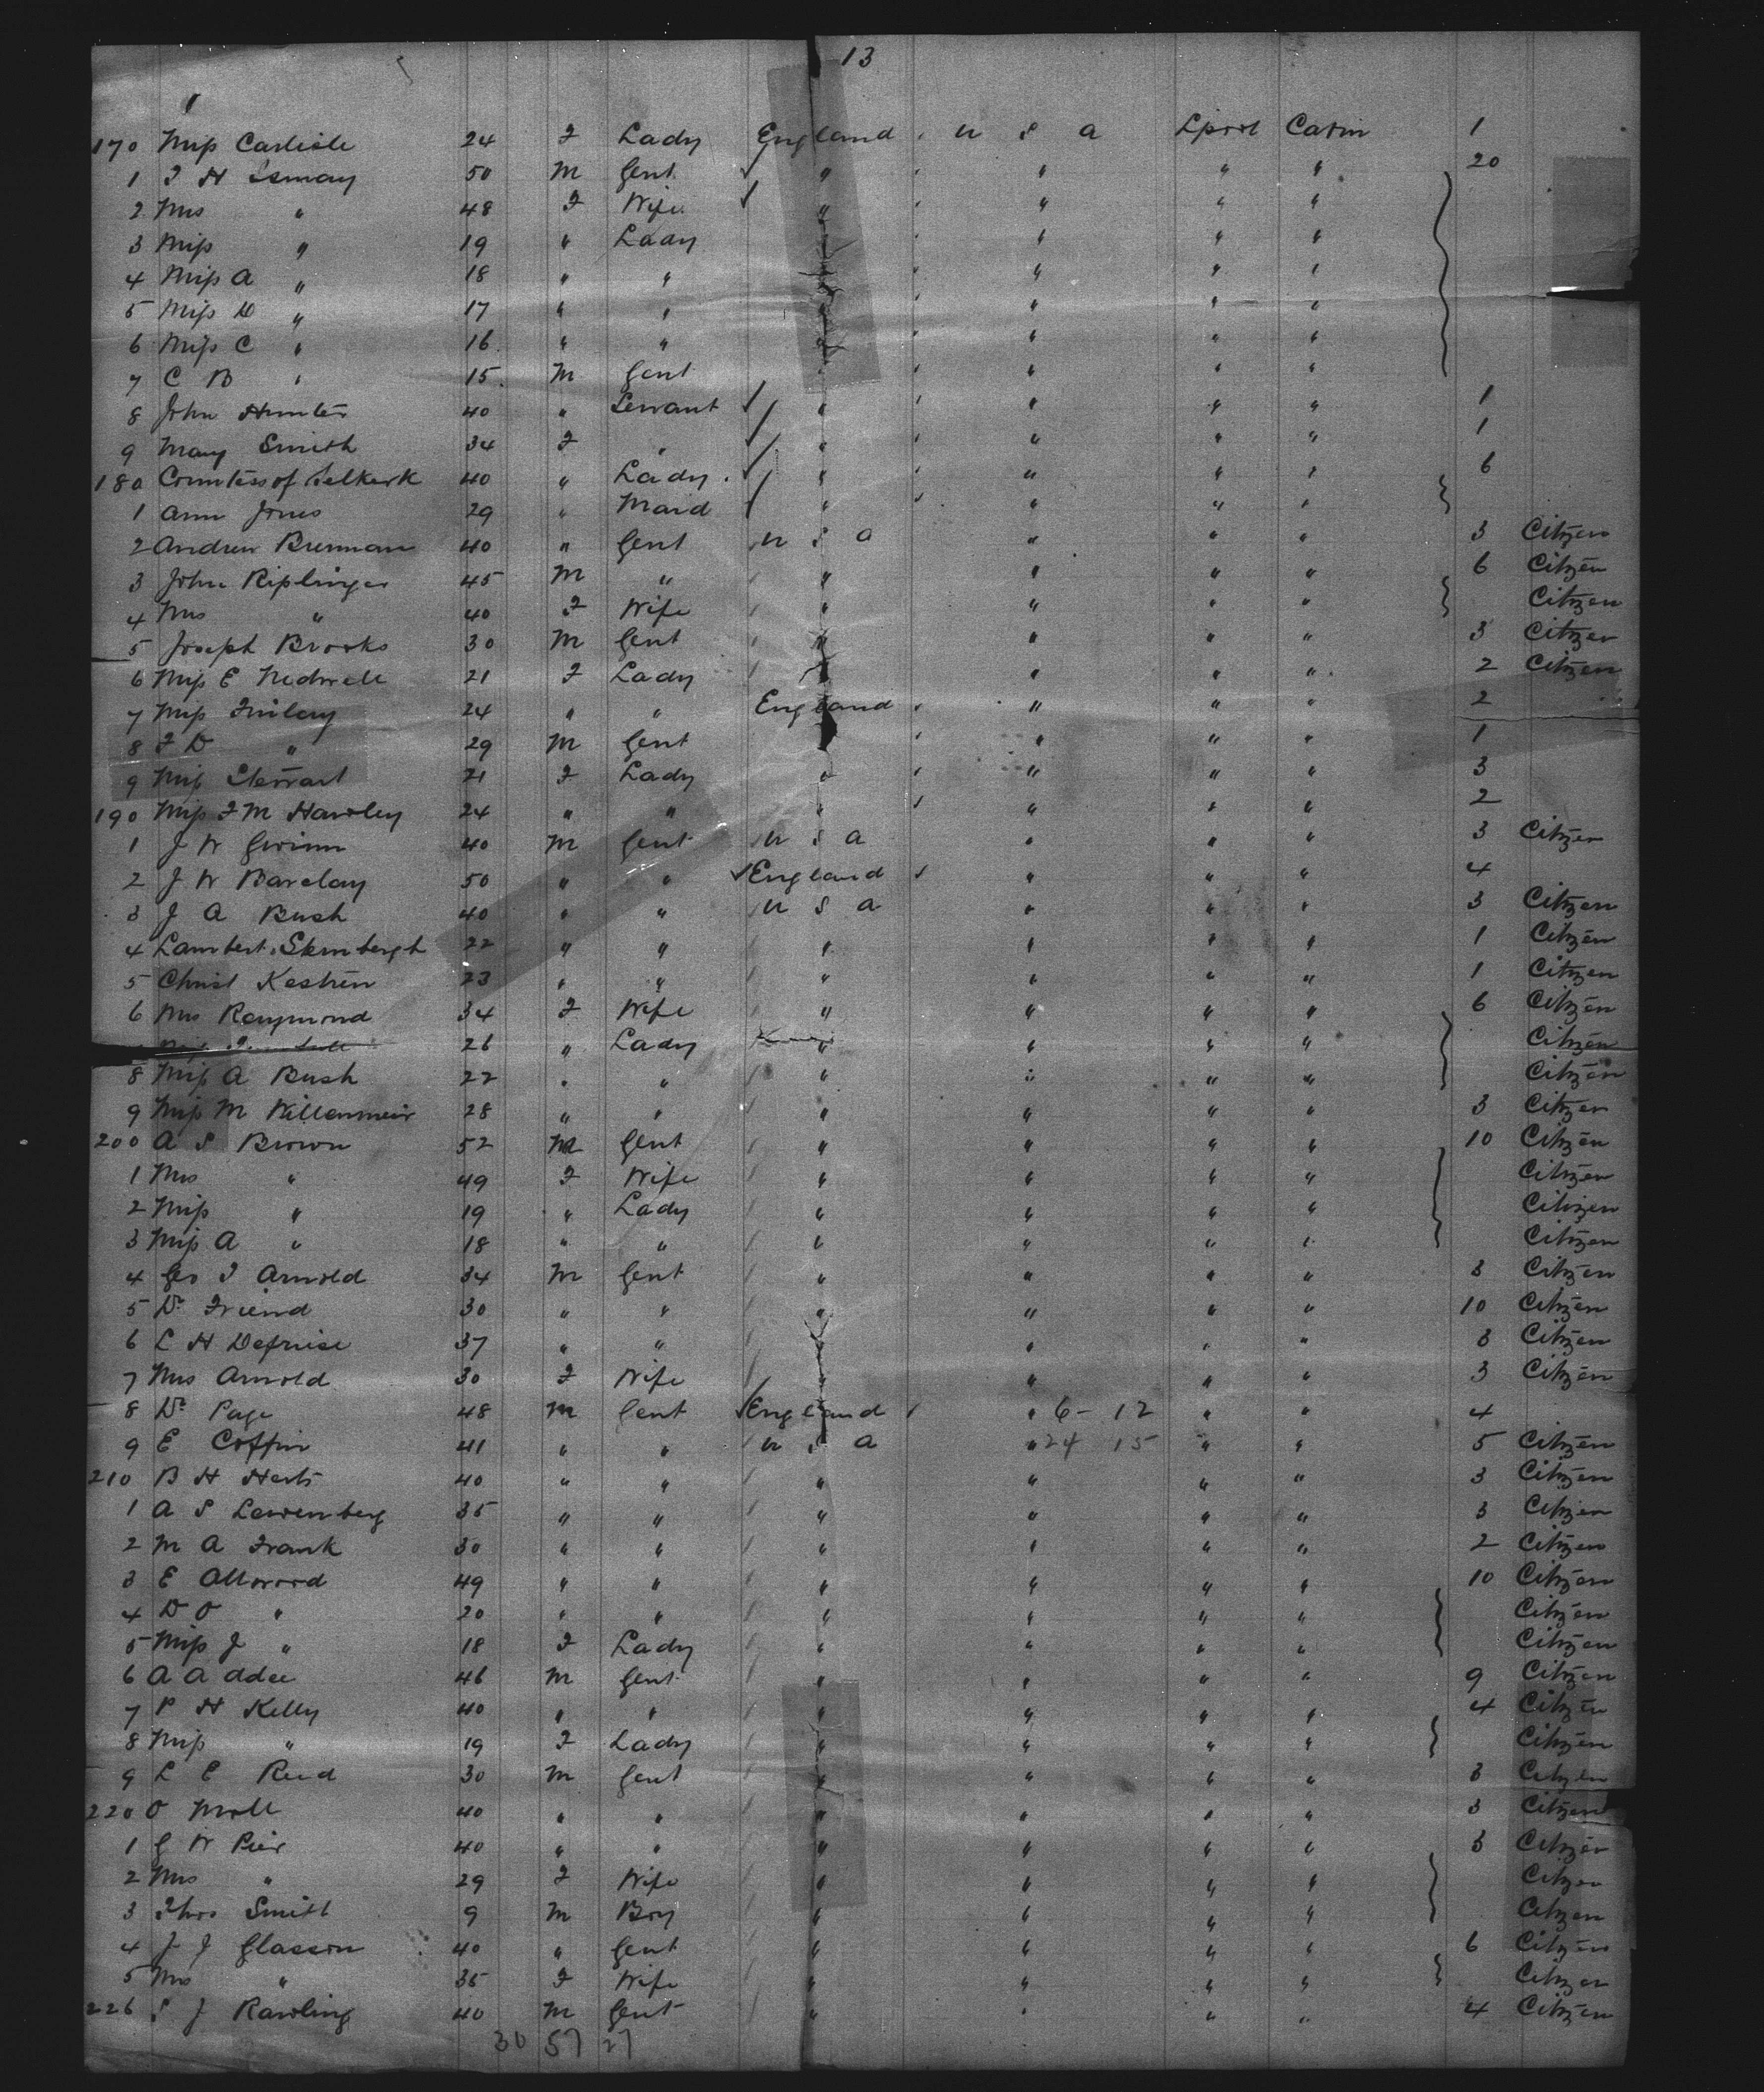 13
170 Miss Carlisle 24 F Lady England U S A Lpool Cabin 1
1 T H Ismay 50 M Gent " " " " 20
2 Mrs " 48 F Wife " " " "
3 Miss " 19 " Lady " " "
4 Miss A " 18 " " " " "
5 Miss D " 17 " " " " "
6 Miss C " 16 " " " " "
7 C B " 15 M Gent " " " "
8 John Hunter 40 " Servant " " " " 1
9 Mary Smith 34 F " " " " " 1
180 Countess of Selkirk 40 " Lady " " " " 6
1 Ann Jones 29 " Maid " " " "
2 Andrew Brennan 40 " Gent U S A " " " 3 Citizen
3 John Riplinger 45 M " " " " " 6 Citizen
4 Mrs " 40 F Wife " " " " Citizen
5 Joseph Brooks 30 M Gent " " " " 3 Citizen
6 Miss E Nedwell 21 F Lady " " " 2 Citizen
7 Miss Finlay 24 " " England " " " 2
8 F D " 29 M Gent " " " 1
9 Miss Stewart 21 F Lady " " " " 3
190 Miss F M Hawley 24 " " " " " " 2
1 J W Gwinn 40 M Gent U S A " " " 3 Citizen
2 J W Barclay 50 " " England " " " 4
3 J A Bush 40 " " U S A " " " 3 Citizen
4 Lambert 22 " " " " " " 1 Citizen
5 Christ 23 " " " " " " 1 Citizen
6 Mrs Raymond 34 F Wife " " " " 6 Citizen
26 " Lady " " " " Citizen
8 Miss A Bush 22 " " " " " " Citizen
9 Miss M 28 " " " " " " 3 Citizen
200 A S Brown 52 M Gent " " " " 10 Citizen
1 Mrs " 49 F Wife " " " " Citizen
2 Miss " 19 " Lady " " " " Citizen
3 Miss A " 18 " " " " " " Citizen
4 Geo T Arnold 34 M Gent " " " " 3 Citizen
5 Dr Friend 30 " " " " " " 10 Citizen
6 L H 37 " " " " " " 3 Citizen
7 Mrs Arnold 30 F Wife " " " " 3 Citizen
8 Dr Page 48 M Gent England " 6 - 12 " " 4
9 E Coffin 41 " " U S A " 24 15 " " 5 Citizen
210 B H Herts 40 " " " " " " 3 Citizen
1 A S Lewenberg 35 " " " " " " 3 Citizen
2 M A Frank 30 " " " " " " 2 Citizen
3 E Attwood 49 " " " " " " 10 Citizen
4 D O " 20 " " " " " " Citizen
5 Miss J " 18 F Lady " " " " Citizen
6 A A Adee 46 M Gent " " " " 9 Citizen
7 P H Kelly 40 " " " " " " 4 Citizen
8 Miss " 19 F Lady " " " " Citizen
9 L E Reid 30 M Gent " " " " 3 Citizen
220 O Moll 40 " " " " " " 3 Citizen
1 G W Pier 40 " " " " " " 3 Citizen
2 Mrs " 29 F Wife " " " " Citizen
3 Thos Smith 9 M Boy " " " " Citizen
4 J J Glasson 40 " Gent " " " " 6 Citizen
5 Mrs " 35 F Wife " " " " Citizen
226 S J Rawling 40 M Gent " " " " 4 Citizen
30 57 27